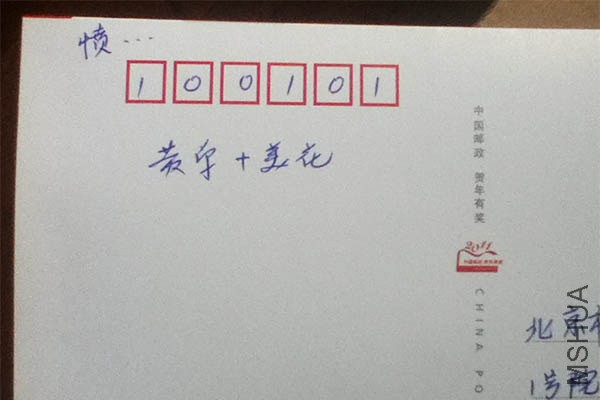 愤...
100101
黄军+美花
中国邮政 贺年有奖
2011
CHINA PO
北京市
1号院
MSHUA